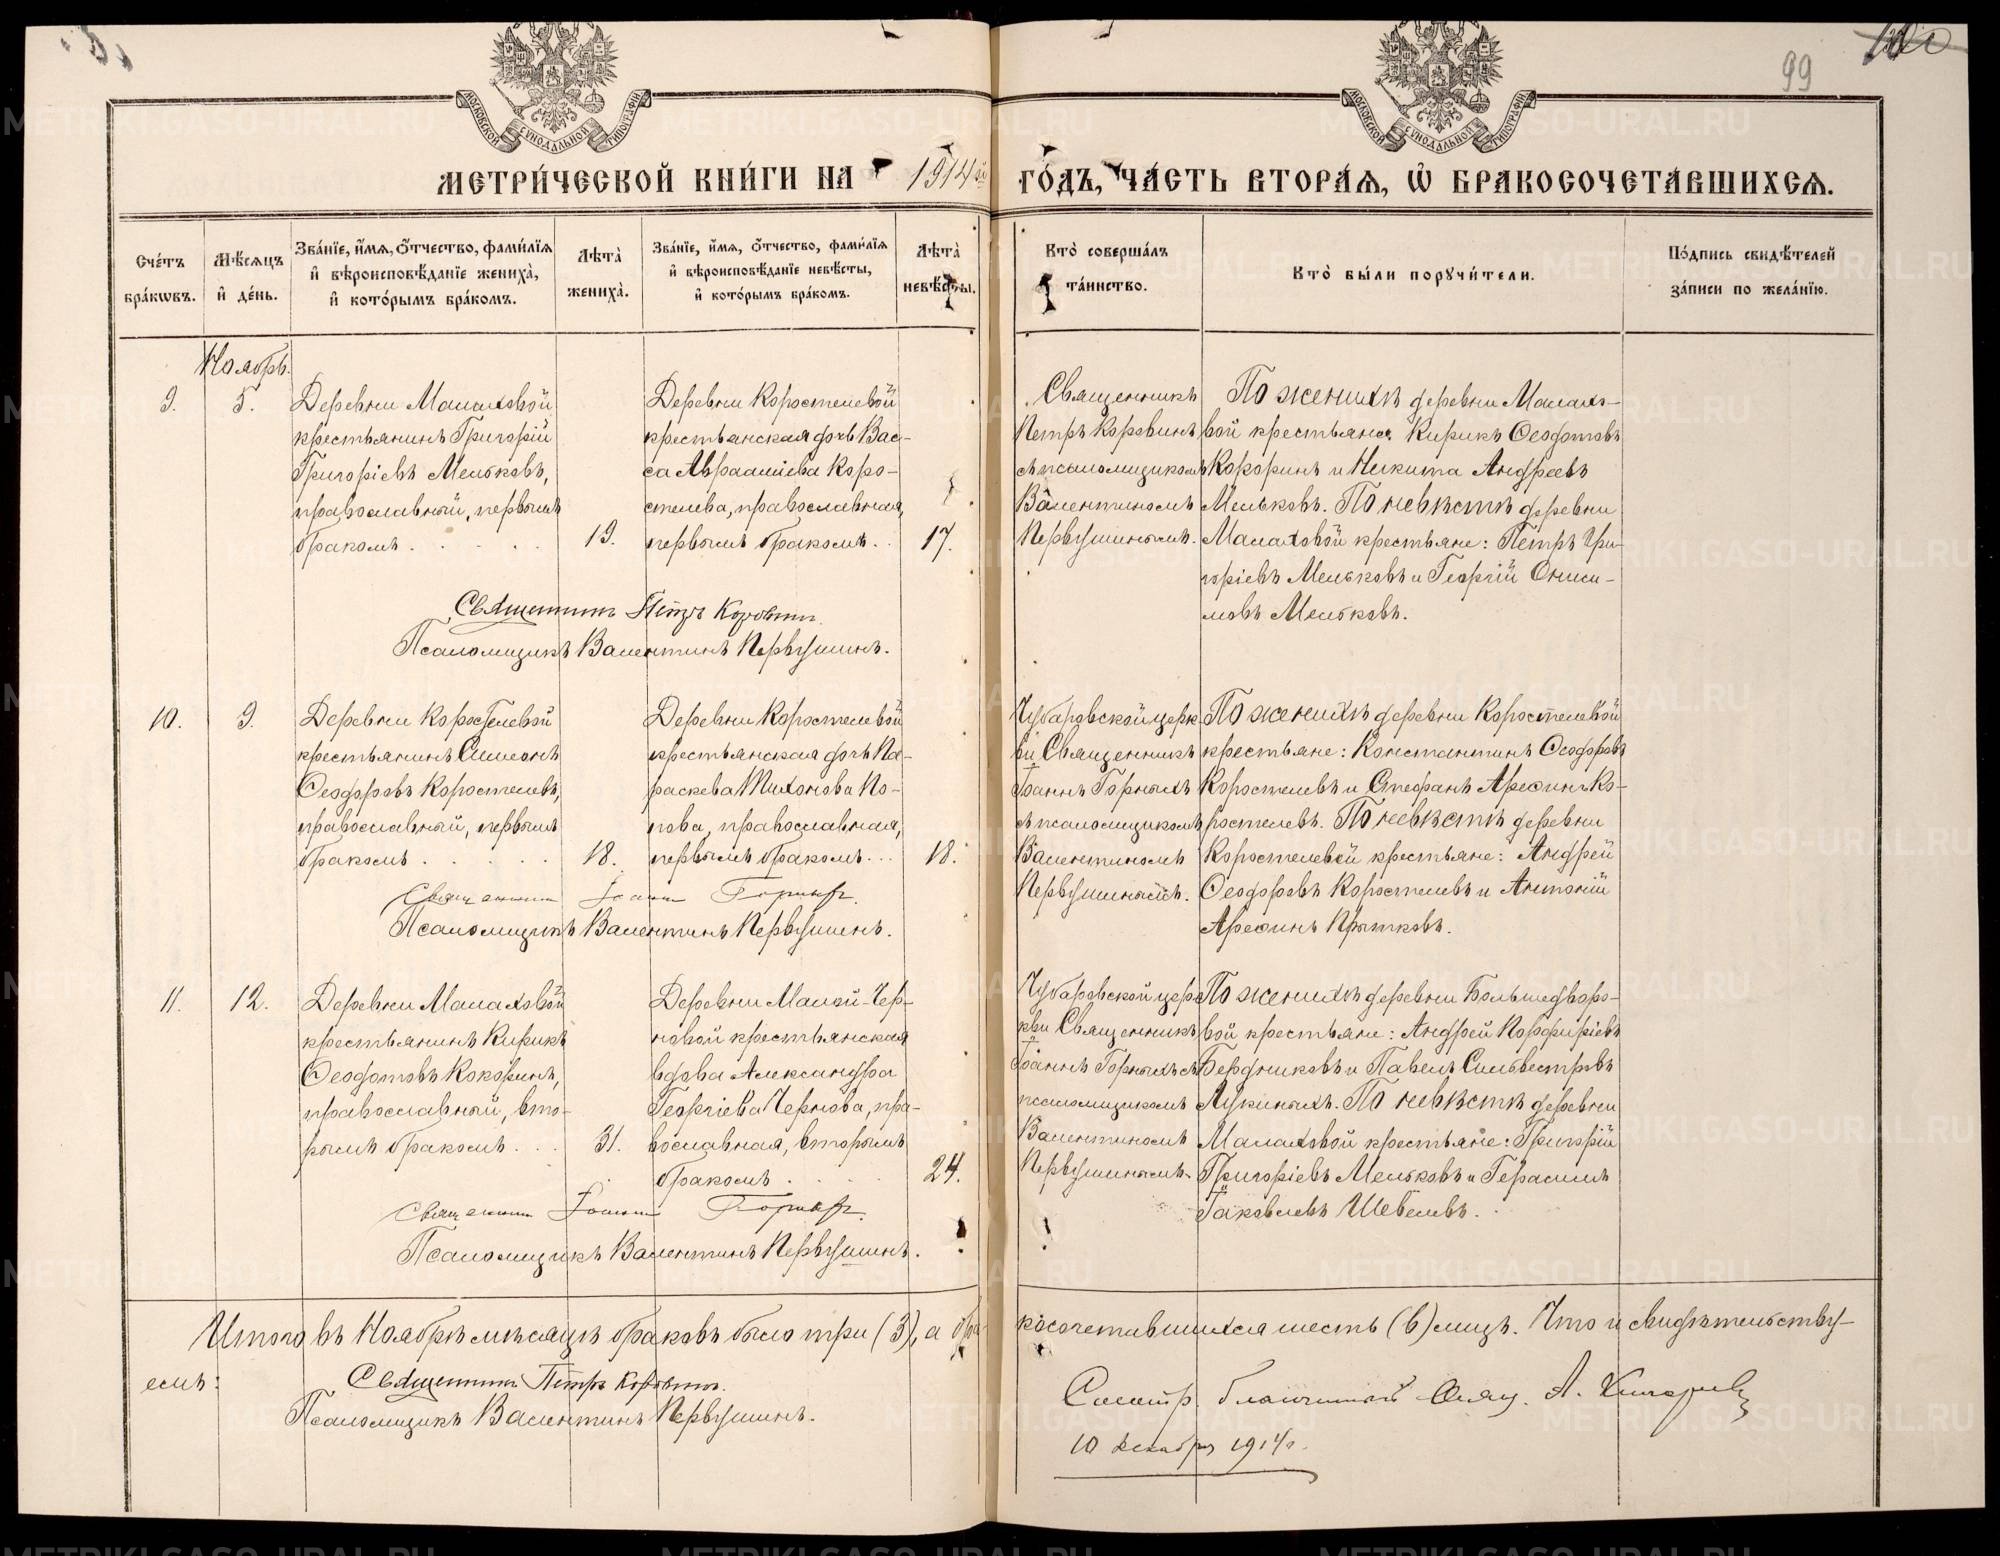 99
МОСКОВСКОЙ СѴНОДАЛЬНОЙ ТИПОГРАФІИ
МОСКОВСКОЙ СѴНОДАЛЬНОЙ ТИПОГРАФІИ
МЕТРИЧЕСКОЙ КНИГИ НА 1914й ГОДЪ, ЧАСТЬ ВТОРАЯ, Ѡ БРАКОСОЧЕТАВШИХСЯ.
Счетъ браковъ.
Мѣсяцъ и день.
Званіе, имя, отчество, фамилія
и вѣроисповѣданіе жениха,
и которымъ бракомъ.
Лѣта жениха.
Званіе, имя, отчество, фамилія
и вѣроисповѣданіе невѣсты,
и которымъ бракомъ.
Лѣта невѣсты.
Кто совершалъ
таинство.
Кто были поручители.
Подпись свидѣтелей
записи по желанію.
Ноябрь.
9.
5.
Деревни Малаховой
крестьянинъ Григорій
Григоріевъ Мельковъ,
православный, первымъ
бракомъ . . . . .
19.
Деревни Коростелевой
крестьянская дочь Вас-
са Авраамiева Коро-
стелева, православная,
первымъ бракомъ . .
17.
Священникъ
Петръ Коровинъ
съ псаломщикомъ
Валентиномъ
Первушинымъ.
По женихѣ деревни Малахо-
вой крестьяне: Кирикъ Ѳеодотовъ
Кокоринъ и Никита Андреевъ
Мельковъ. По невѣстѣ деревни
Малаховой крестьяне: Петръ Гри-
горіевъ Мельковъ и Георгій Ониси-
мовъ Мельковъ.
Священникъ Петръ Коровинъ.
Псаломщикъ Валентинъ Первушинъ.
10.
9.
Деревни Коростелевой
крестьянинъ Симеонъ
Ѳеодоровъ Коростелевъ,
православный, первымъ
бракомъ . . . . .
18.
Деревни Коростелевой
крестьянская дочь Па-
раскева Тихонова По-
пова, православная,
первымъ бракомъ . . .
18.
Чубаровской церк-
ви Священникъ
Іоаннъ Горныхъ
съ псаломщикомъ
Валентиномъ
Первушинымъ.
По женихѣ деревни Коростелевой
крестьяне: Константинъ Ѳеодоровъ
Коростелевъ и Стефанъ Арефинъ Ко-
ростелевъ. По невѣстѣ деревни
Коростелевой крестьяне: Андрей
Ѳеодоровъ Коростелевъ и Антоній
Арефинъ Прытковъ.
Священникъ Іоаннъ Горныхъ.
Псаломщикъ Валентинъ Первушинъ.
11.
12.
Деревни Малаховой
крестьянинъ Кирикъ
Ѳеодотовъ Кокоринъ,
православный, вто-
рымъ бракомъ . . .
31.
Деревни Малой-Чер-
новой крестьянская
вдова Александра
Георгіева Чернова, пра-
вославная, вторымъ
бракомъ . . . .
24.
Чубаровской цер-
кви Священникъ
Іоаннъ Горныхъ съ
псаломщикомъ
Валентиномъ
Первушинымъ.
По женихѣ деревни Большедворо-
вой крестьяне: Андрей Порфиріевъ
Бердниковъ и Павелъ Сильвестровъ
Лукиныхъ. По невѣстѣ деревни
Малаховой крестьяне: Григорій
Григоріевъ Мельковъ и Герасимъ
Іаковлевъ Шевелевъ.
Священникъ Іоаннъ Горныхъ.
Псаломщикъ Валентинъ Первушинъ.
Итого въ Ноябрѣ мѣсяцѣ браковъ было три (3), а бра-
косочетавшихся шесть (6) лицъ. Что и свидѣтельству-
емъ:
Священникъ Петръ Коровинъ.
Псаломщикъ Валентинъ Первушинъ.
Смотр. благочинный Свящ. А.
10 декабря 1914 г.
METRIKI.GASO-URAL.RU